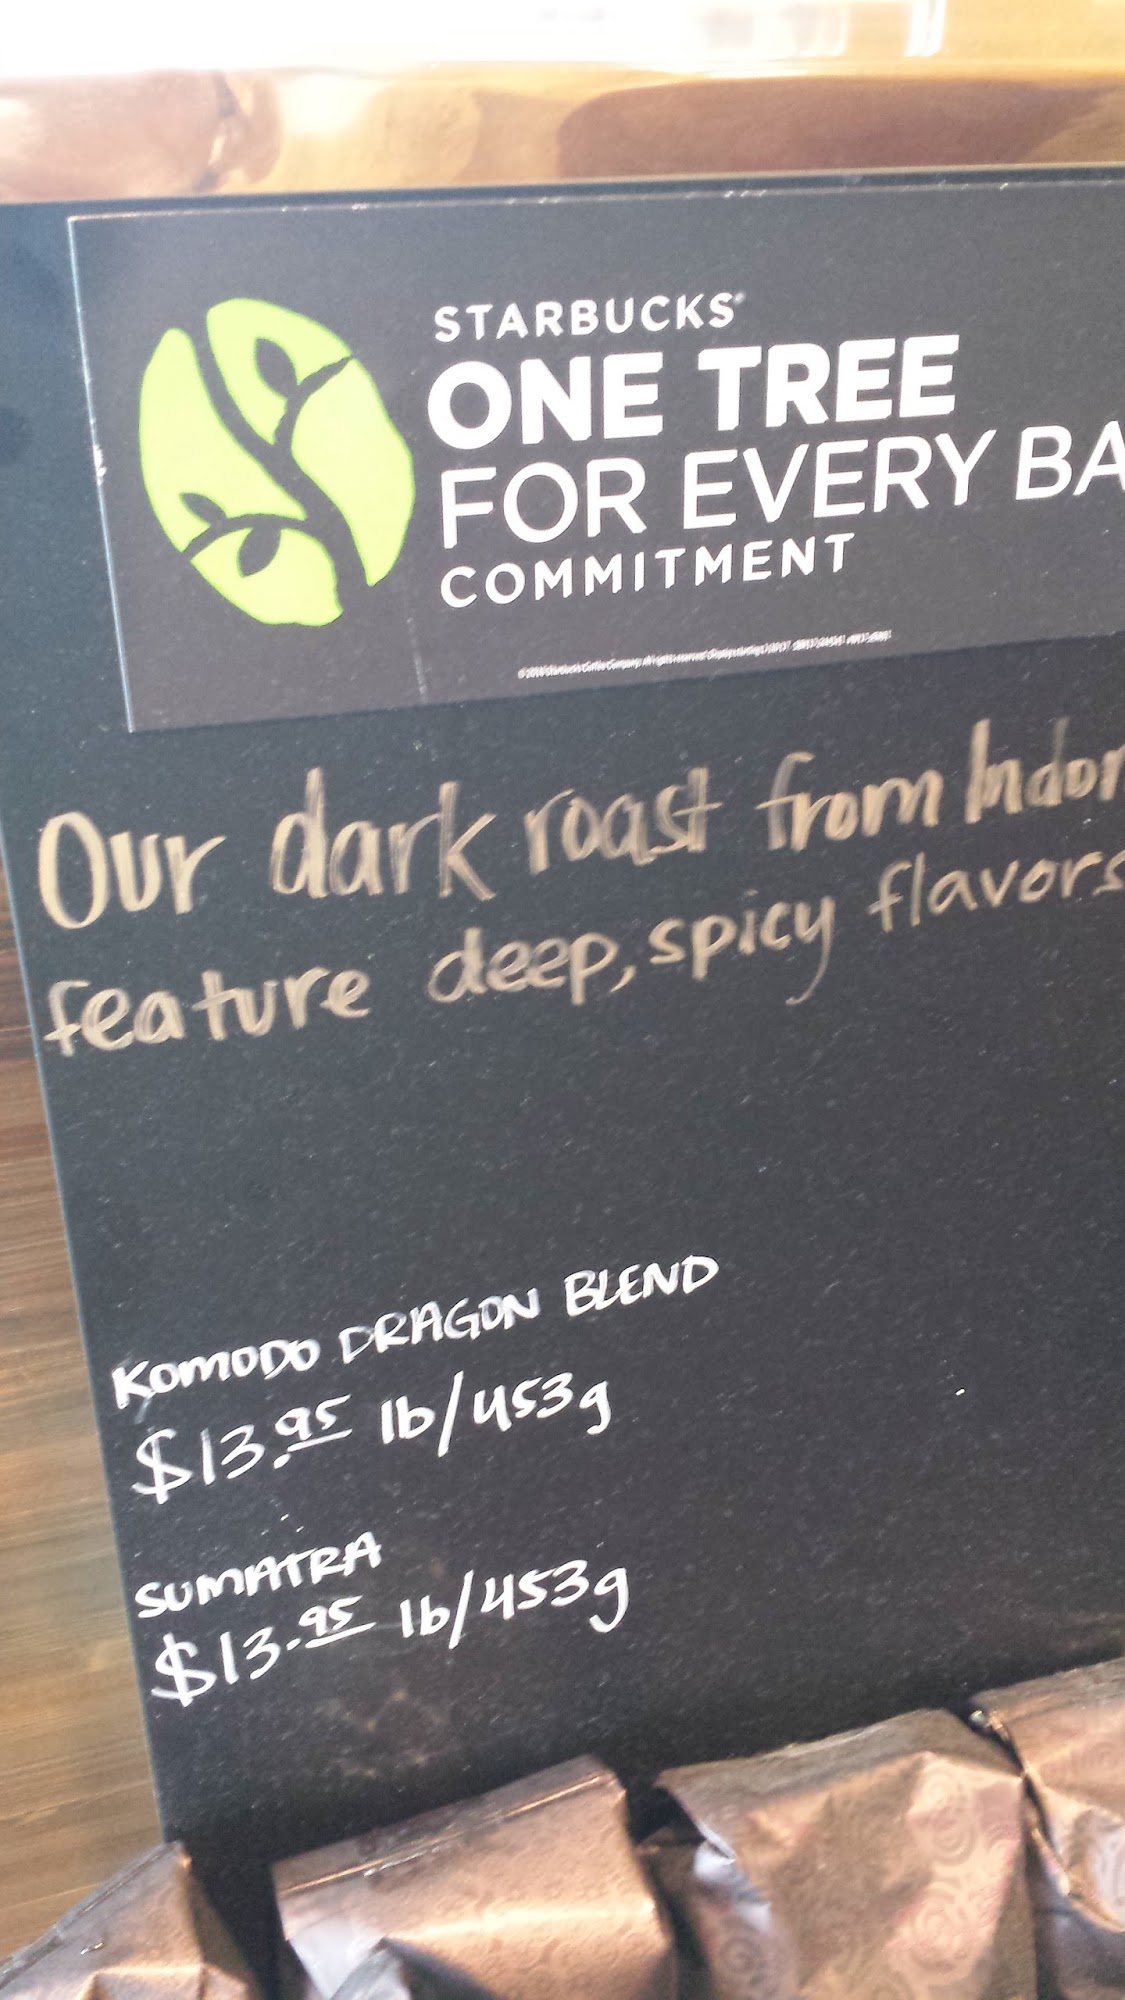 STARBUCKS®
ONE TREE
FOR EVERY BA
COMMITMENT
Our dark roast from Indon
feature deep, spicy flavors
KOMODO DRAGON BLEND
$13.95 lb/453g
SUMATRA
$13.95 lb/453g